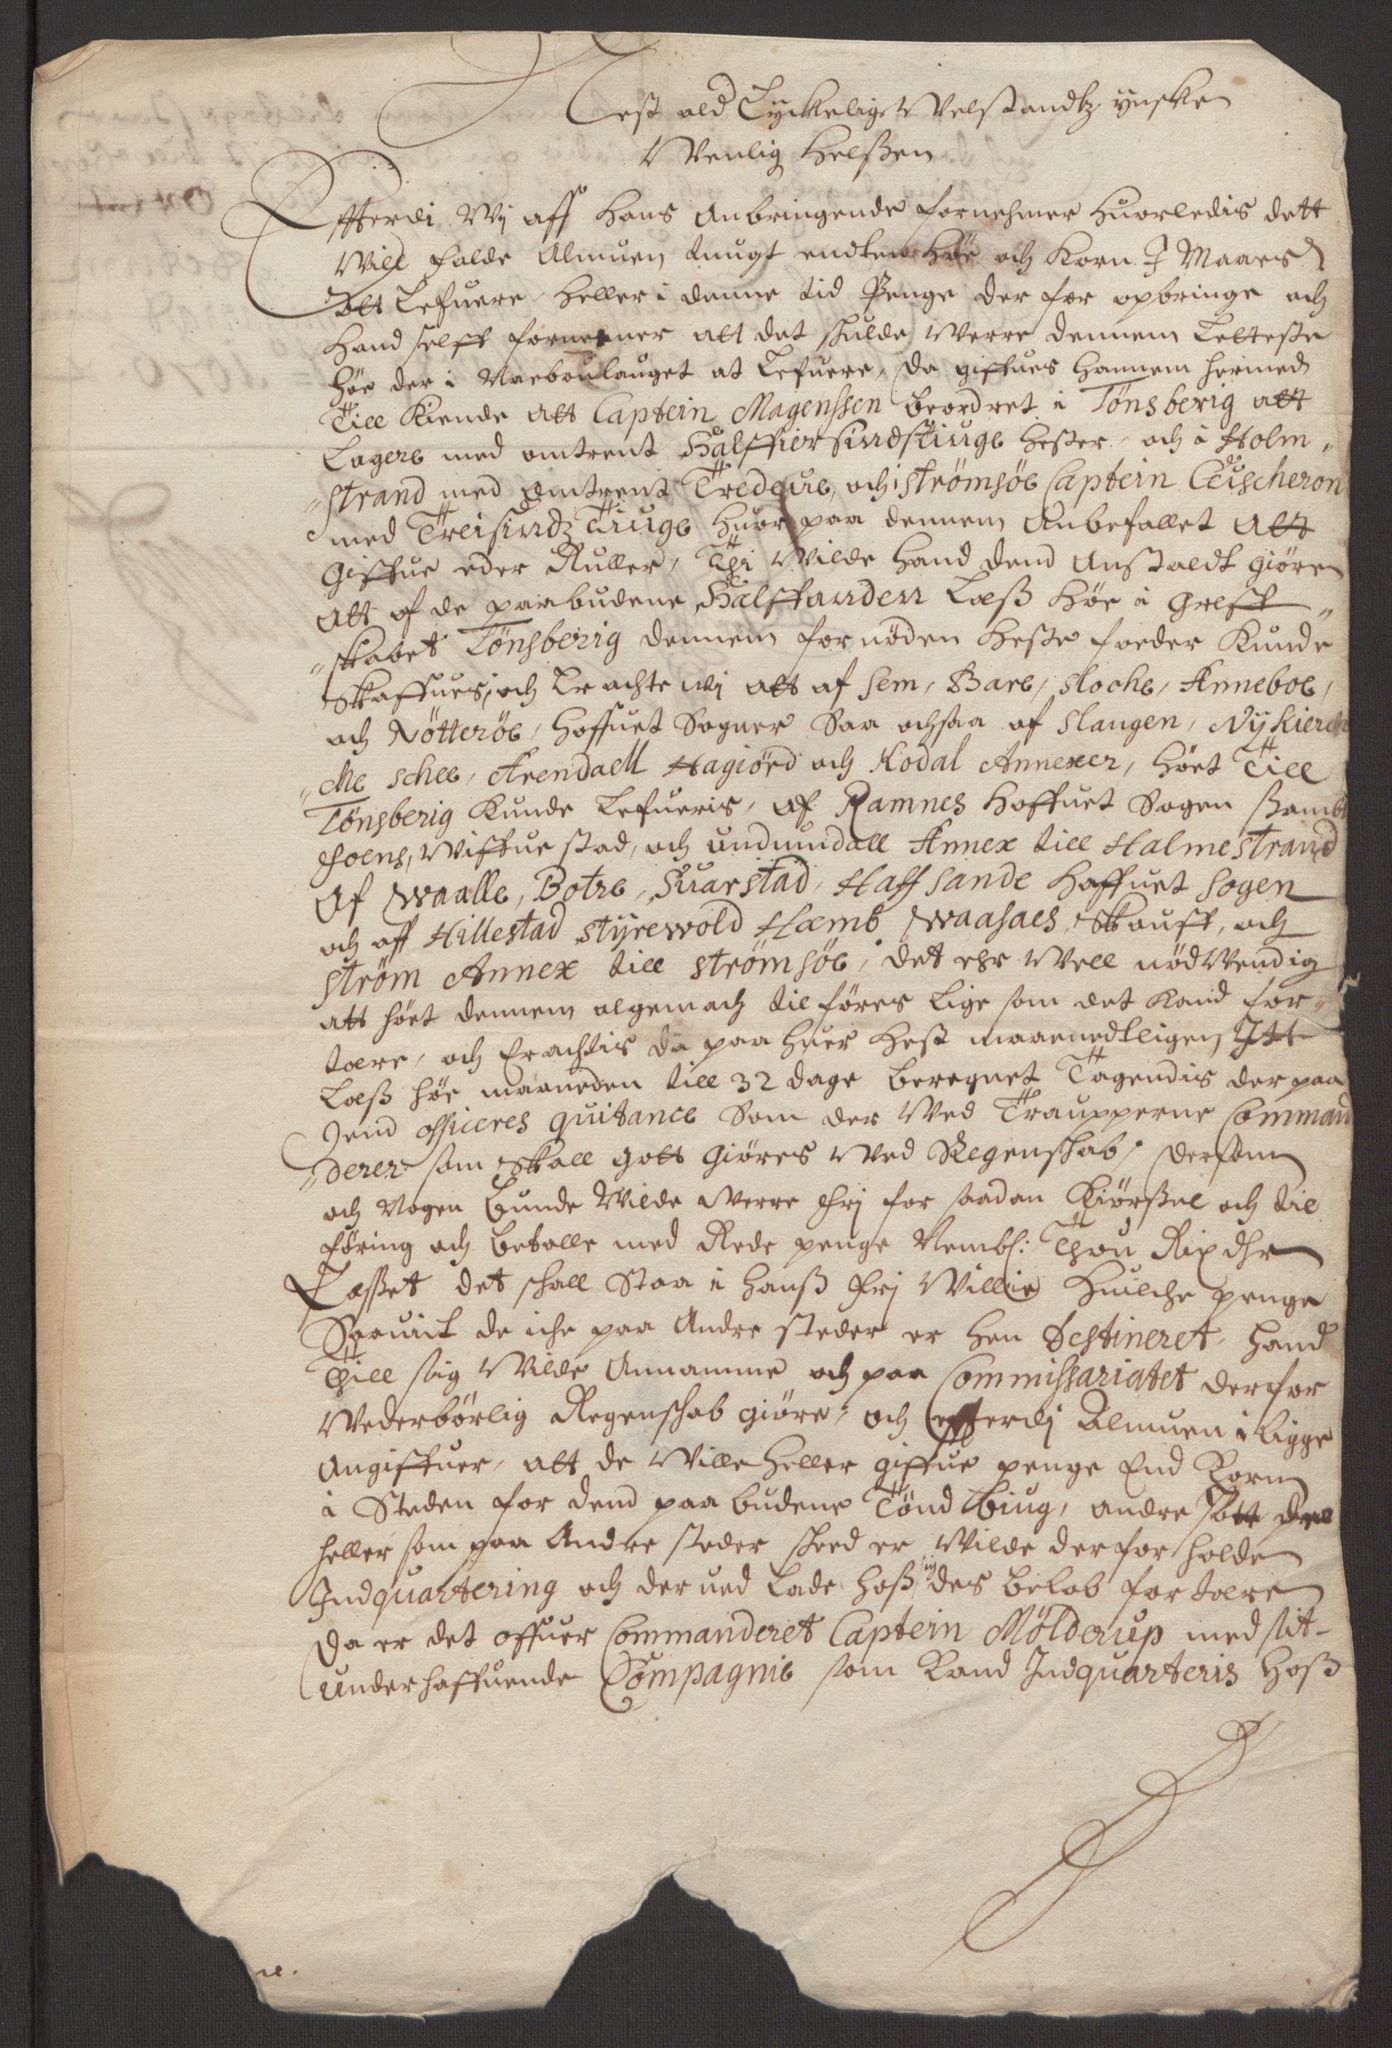 Nest ald Lyckelig Velstandtz ynsken
Venlig Helssen
Effterdi Wj aff Hans Anbringende fornehmer huorledis dett
Will falde Almuen tungt endten Høe och Korn J Maarsd
att Lefuere, heller i denne tid Penge der for opbringe och
Hand selff formener att det skulde Werre dennem Letteste
Høe der i Naeboulauget at Lefuere, da giffues hannem hermed
Till Kiende att Captein Magenssen beordret i Tönsberig att
Lagere med omtrent Halffiersindstiuge Hester, och i Holm¬
strand med omtrent Tredeue, och i Strømsøe Captein
med Treisindztiuge huor paa dennem Anbefallet att
Giffue eder Ruller, Thi Wilde hand dend Anstaldt giøre
att af de paabudene Halffanden Læß Høe i Greff¬
skabet Tönsberig dennem for nøden Heste foeder Kunde
Skaffues, och Er achte wj att af Sem, Bare, Stoche, Anneboe,
och Nötteröe, Hoffuet Sogner Saa ochsaa af Slaugen, Nykierc
che Schee, Arendaell Hagiörd och Kodal Annexer, Höet Till
Tönsberig Kunde Lefueris, af Ramnes Hoffuet Sogen
foens, Wiffuestad, och undrumdall Annex till Halmestrand
Af Waalle, Botre, Suarstad, Haff Sande Hoffuet Sogen
och aff Hillestad Styrewold Hæmb Waasaes, Skouff, och
Ström Annex till Strømsöe, det ehr Well nødWendig
att höet dennem algemach tilføres Lige som det Kand for¬
tære, och Erachtis da paa huer Hest maanedtligen Itt
Læß høe maaneden till 32 dage beregnet Tagendis der paa
Jend officeres quitance Som der Wed Traupperne Comman
derer som Skall gott giøres Wed Regenskab, dersom
och Nogen Bunde Wilde Werre frj for saadan Kiørssel och til
føring och betalle med Rede penge Nembl: Thou Rix dhr
Læsset det skall Staa i hanß frj Willie Huilche penge
Saauit de iche paa Andre Steder er hen destineret, hand
Till sig Wilde Annamme och paa Commissariatet derfor
Wederbörlig Regenskab giøre, och efterdj Almuen i Ligge
Angiffuer, att de Wille heller giffue penge End Korn
i Steden for dend paa budene Tönd Biug, andre
heller som paa Andre steder skeed er Wilde derfor holde
Indquartering och der ued Lade hoß sig des beløb fortære
da er det offuer Commanderet Captein Mölderup med sit
underhaffuende Compagnie som Kand Indquarteris hoß